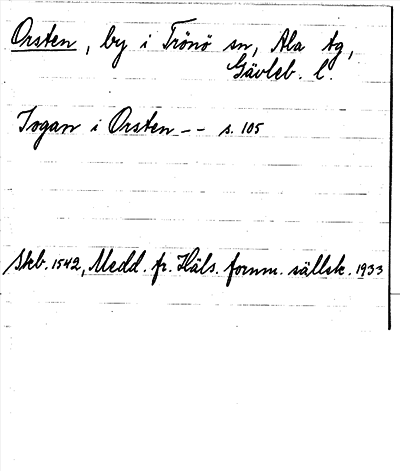 Orsten, by i Trönö sn, Ala tg,
Gävleb. l.
Jogan i Orsten -- s. 105
Skb. 1542, Medd. fr. Häls. fornm. sällsk. 1933